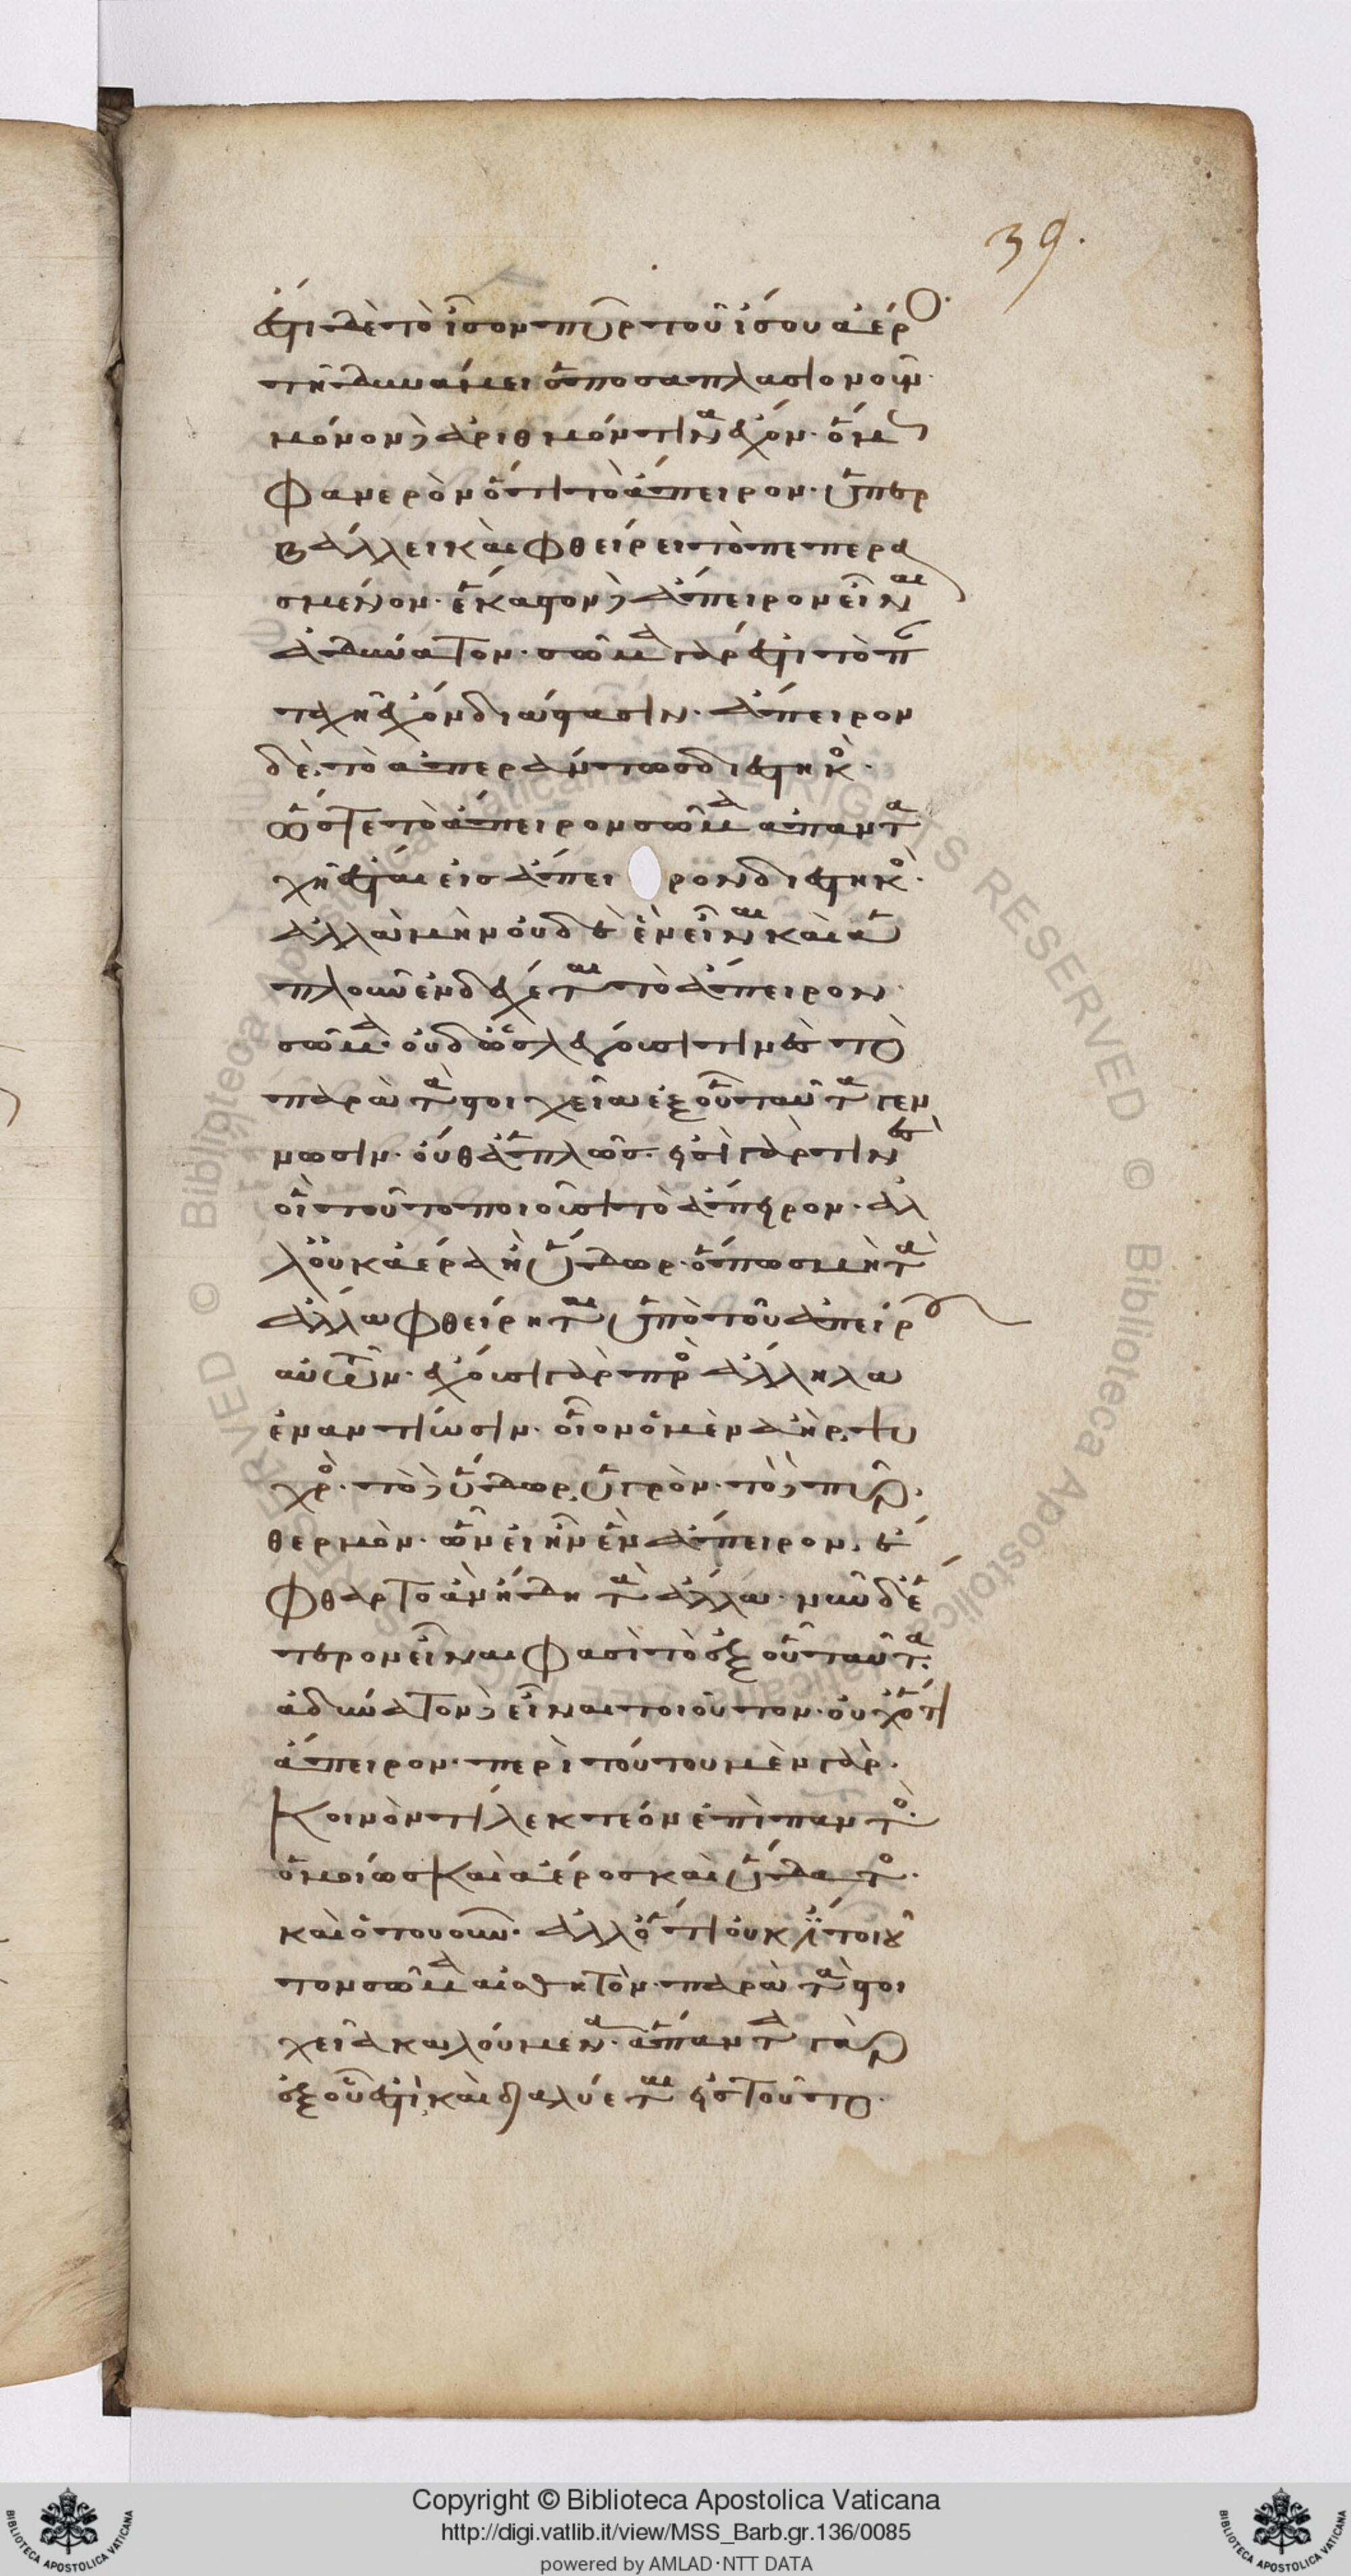 39.
ἐστι δὲ τὸ ἴσον πῦρ τοῦ ἴσου ἀέρος
τῇ δυνάμει ὁποσαπλασιονοῦν
μόνον δὲ ἀριθμόν τινα ἔχον. ὅμως
φανερὸν ὅτι τὸ ἄπειρον. ὑπερ
βάλλει καὶ φθείρει τὸ πεπερα
σμένον. ἕκαστον δ' ἄπειρον εἶναι
ἀδύνατον. σῶμα γάρ ἐστι τὸ πάν
τῃ ἔχον διάστασιν. ἄπειρον
δὲ, τὸ ἀπεράντως διεστηκός.
ὥστε τὸ ἄπειρον σῶμα ἁπαντα
χῇ ἔσται εἰς ἄπειρον διεστηκός.
ἀλλὰ μὴν οὐδὲ ἓν εἶναι καὶ ἁ
πλοῦν ἐνδέχεται τὸ ἄπειρον
σῶμα. οὐδ' ὡς λέγουσί τινες τὸ
παρὰ τὰ στοιχεῖα ἐξ οὗ ταῦτα γεν
νῶσιν. οὔθ' ἁπλῶς. εἰσὶ γάρ τινες
οἳ τοῦτο ποιοῦσι τὸ ἄπειρον. ἀλ
λ' οὐκ ἀέρα ἢ ὕδωρ. ὅπως μὴ τὰ
ἄλλα φθείρηται ὑπὸ τοῦ ἀπείρου
αὐτῶν. ἔχουσι γὰρ πρὸς ἄλληλα
ἐναντίωσιν. οἷον ὁ μὲν ἀὴρ, ψυ
χρός. τὸ δ' ὕδωρ, ὑγρόν. τὸ δὲ πῦρ,
θερμόν. ὧν εἰ ἦν ἓν ἄπειρον, ἔ
φθαρτο ἂν ἤδη τὰ ἄλλα. νῦν δ' ἕ
τερον εἶναι φασὶ τὸ ἐξ οὗ ταῦτα.
ἀδύνατον δ' εἶναι τοιοῦτον. οὐχ ὅτι
ἄπειρον. περὶ τούτου μὲν γὰρ.
Κοινόν τι λεκτέον ἐπὶ παντὸς.
ὁμοίως καὶ ἀέρος καὶ ὕδατος.
καὶ ὁτουοῦν. ἀλλ' ὅτι οὐκ ἔστι τοιοῦ
τον σῶμα αἰσθητὸν. παρὰ τὰ στοι
χεῖα καλούμενα. ἅπαντα γὰρ
ἐξ οὗ ἐστὶ, καὶ διαλύεται εἰς τοῦτο.
Copyright © Biblioteca Apostolica Vaticana
http://digi.vatlib.it/view/MSS_Barb.gr.136/0085
powered by AMLAD·NTT DATA